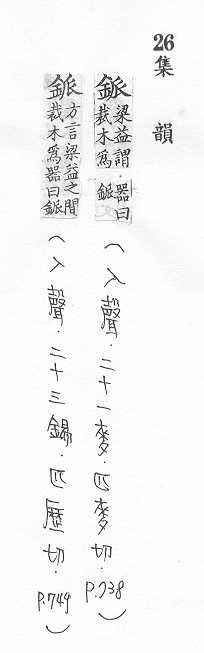 26集韻
釽 梁益謂裁木爲器曰釽(入聲．二十一麥．匹麥切．P.738)
釽 方言梁益之間裁木爲器曰釽(入聲．二十三錫．匹歷切．P.749)